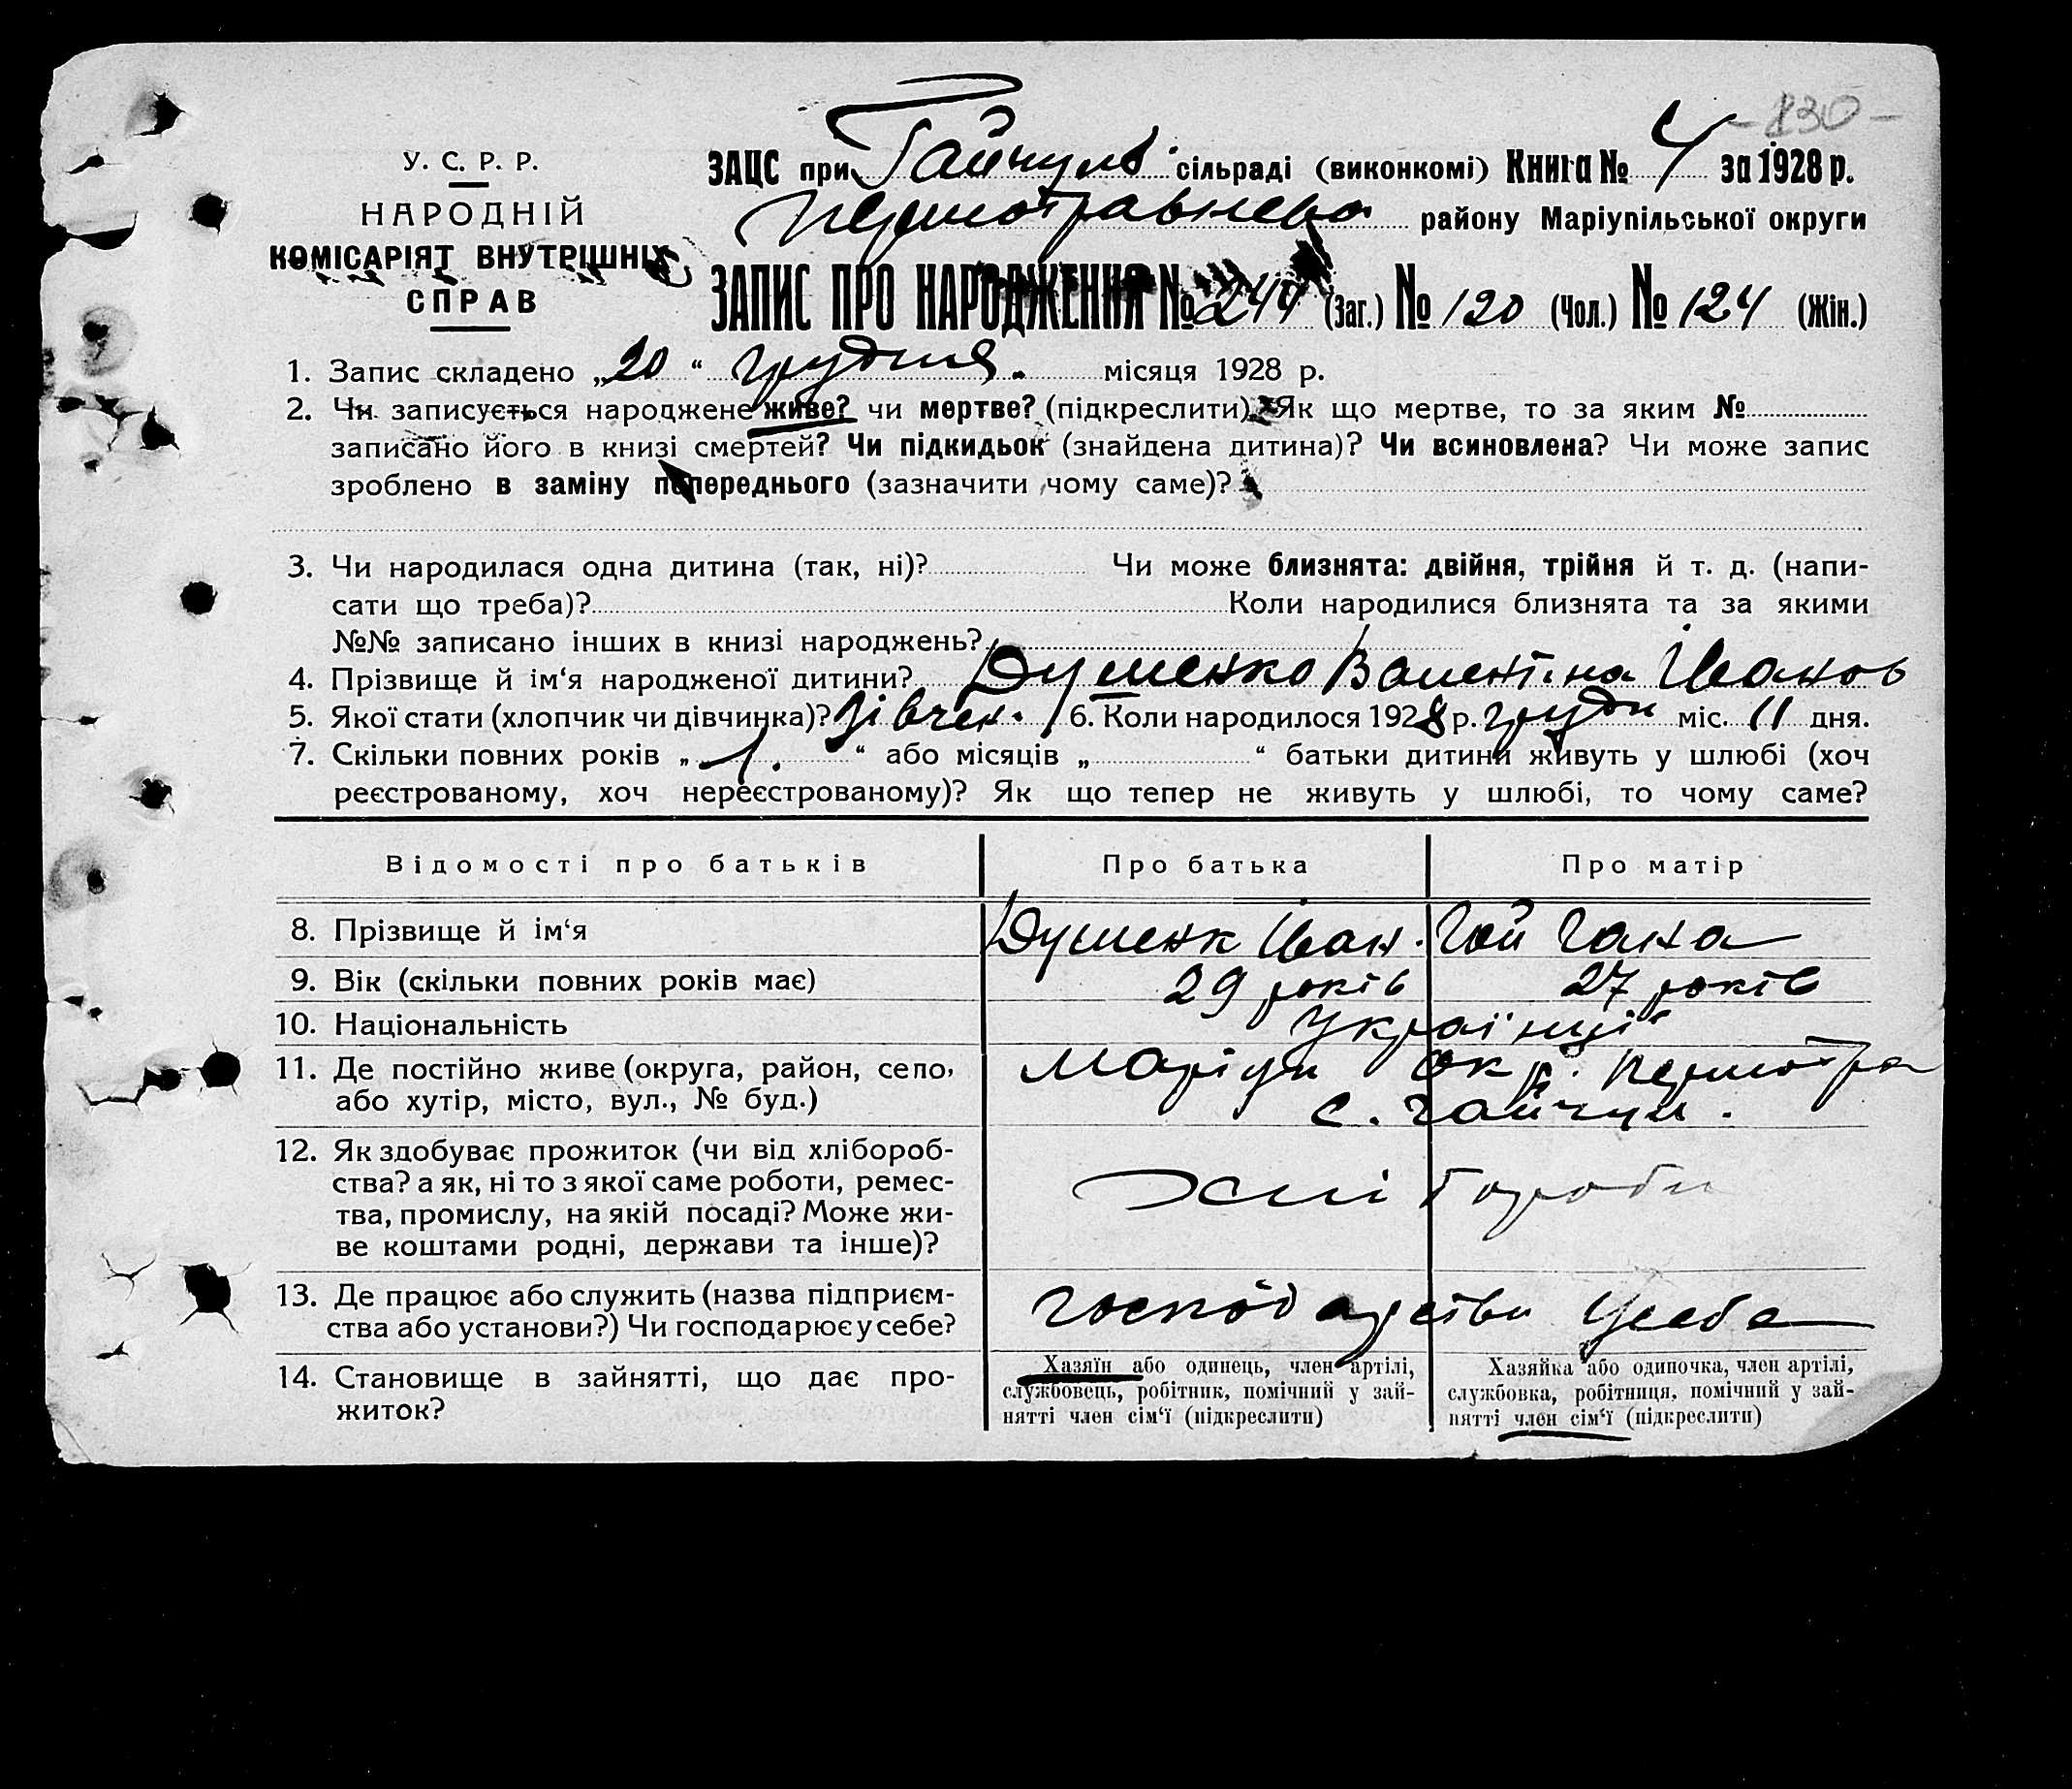 -130-
У. С. Р. Р.
НАРОДНІЙ
КОМІСАРІЯТ ВНУТРІШНІХ
СПРАВ
ЗАЦС при Гайчул. сільраді (виконкомі) Книга № 4 за 1928 р.
Першотравнева району Маріупільської округи
ЗАПИС ПРО НАРОДЖЕННЯ № 244 (Заг.) № 120 (Чол.) № 124 (Жін.)
1. Запис складено „20“ грудня. місяця 1928 р.
2. Чи записується народжене живе? чи мертве? (підкреслити). Як що мертве, то за яким №
записано його в книзі смертей? Чи підкидьок (знайдена дитина)? Чи всиновлена? Чи може запис
зроблено в заміну попереднього (зазначити чому саме)?
3. Чи народилася одна дитина (так, ні)? Чи може близнята: двійня, трійня й т. д. (напи-
сати що треба)? Коли народилися близнята та за якими
№№ записано інших в книзі народжень?
4. Прізвище й ім‘я народженої дитини? Душенко Валентіна Іванов
5. Якої стати (хлопчик чи дівчинка)? Дівчен. 6. Коли народилося 1928 р. грудн міс. 11 дня.
7. Скільки повних років „1.“ або місяців „ “ батьки дитини живуть у шлюбі (хоч
реєстрованому, хоч нереєстрованому)? Як що тепер не живуть у шлюбі, то чому саме?
Відомості про батьків Про батька Про матір
8. Прізвище й ім‘я Душенк Іван. Гой Гана
9. Вік (скільки повних років має) 29 років 27 років
10. Національність Українці
11. Де постійно живе (округа, район, село,
або хутір, місто, вул., № буд.)
Маріуп окр. Першотра
с. Гайчул.
12. Як здобуває прожиток (чи від хлібороб-
ства? а як, ні то з якої саме роботи, ремес-
тва, промислу, на якій посаді? Може жи-
ве коштами родні, держави та інше)?
Хліборобы
13. Де працює або служить (назва підприєм-
ства або установи?) Чи господарює у себе?
господарстви Усебе
14. Становище в зайнятті, що дає про-
житок?
Хазяїн або одинець, член артілі,
службовець, робітник, помічний у зай-
нятті член сім‘ї (підкреслити)
Хазяйка або одиночка, член артілі,
службовка, робітниця, помічний у зай-
нятті член сім‘ї (підкреслити)